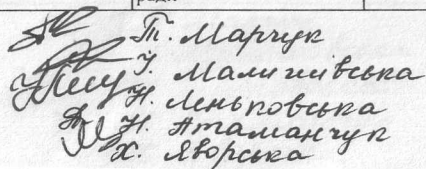 ради
Т. Марчук
У. Малишівська
Н. Леньковська
Н. Атаманчук
Х. Яворська